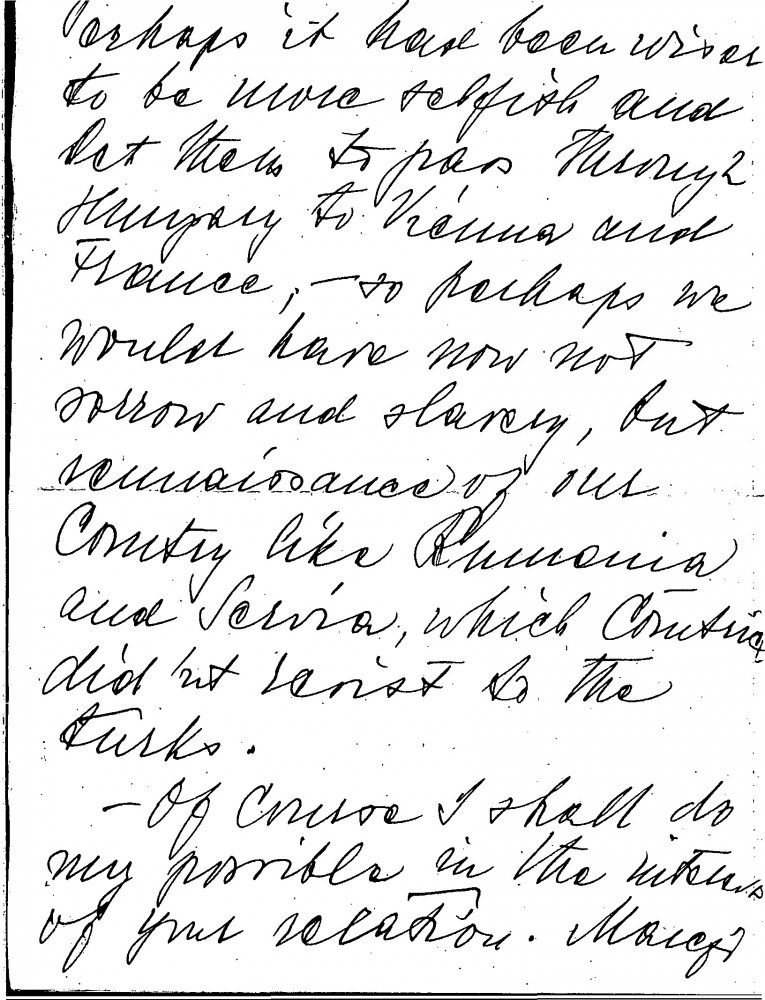 Perhaps it had been wiser
to be more selfish and
let them to pass through
Hungary to Vienna and
France, – so perhaps we
would have now not
sorrow and slavery, but
rennaissance of our
Country like Rumania
and Servia, which Countries
did'nt resist to the
turks.
– Of course I shall do
my possible in the interess
of your relation.